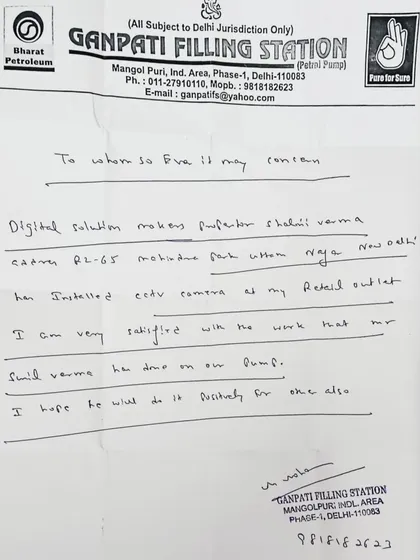 (All Subject to Delhi Jurisdiction Only)
Bharat Petroleum
GANPATI FILLING STATION
(Petrol Pump)
Pure for Sure
Mangol Puri, Ind. Area, Phase-1, Delhi-110083
Ph. : 011-27910110, Mopb. : 9818182623
E-mail : ganpatifs@yahoo.com
To whom so Eva it may concern
Digital solution makers propertor Shalni verma
address RZ-65 mohindra park uttam Nagar New Delhi
has Installed cctv camera at my Retail outlet
I am very satisfied with the work that mr
Sunil verma has done on our Pump.
I hope he will do it positively for other also
GANPATI FILLING STATION
MANGOLPURI INDL. AREA
PHASE-1, DELHI-110083
9818182623